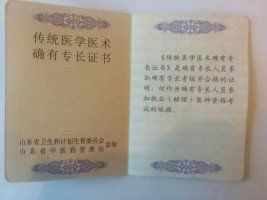 传统医学医术
确有专长证书
山东省卫生和计划生育委员会
山东省中医药管理局
监制
《传统医学医术确有专
长证书》是确有专长人员参
加确有专长考核并合格的证
明，仅作为确有专长人员参
加执业（助理）医师资格考试
的依据。